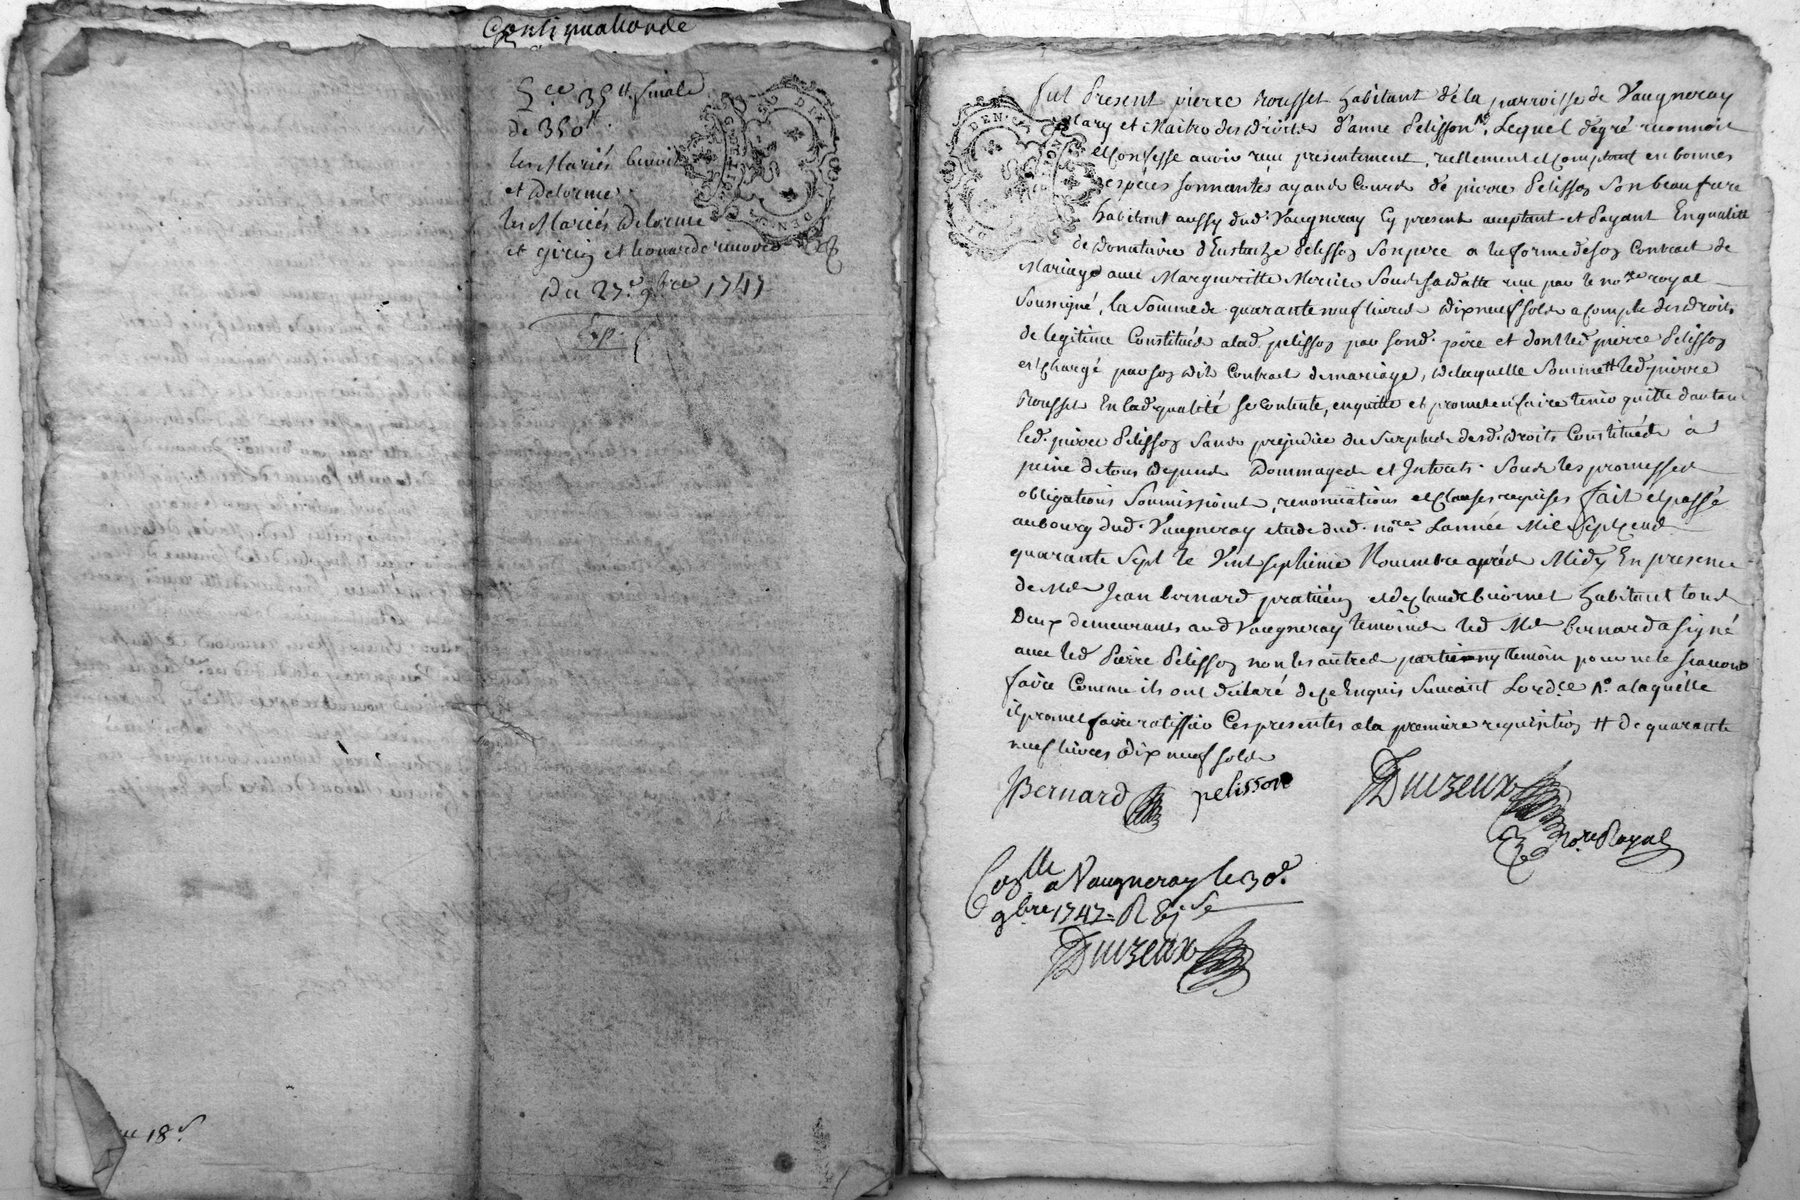 Confirmationde
Q.ce 35tt finale
de 350tt.
les Mariés benoit
et Delorme
les Mariés Delorme
et girin et leonarde
Du 27e. 9bre 1747
Exp.
18s.
GENERALITE DE LYON
DIX DEN.
fut Present pierre Rousset habitant dela parroisse de Vaugneray
Mary et Maitre des Droits d'anne Pelisson No. Lequel degré reconnoit
et Confesse avoir reçu presentement, reellement et Comptant en bonnes
espéces sonnantes ayants Cours de pierre Pelisson son beau frere
habitant aussy dud. Vaugneray Cy present acceptant et Payant En qualité
de Donataire d'Eustache Pelisson son pere a la forme deson Contract de
Mariage avec Margueritte Mercier Sous sa datte reçu par le nore royal
soussigné, la somme de quarante neuf livres dix neuf sols a compte des droits
de legitime Constitués alad. pelisson par sond. pére et dont led. pierre Pelisson
est Chargé par son dit Contract demariage, de laquelle somme tt led. pierre
Rousset En lad. qualité se contente, en quitte et promet en faire tenir quitte d'autant
led. pierre Pelisson sans prejudice du surplus desd. droits Constitués à
peine de tous depens dommages et Interets. Sous les promesses
obligations soumissions, renonciations et clauses requises fait et passé
au bourg dud. Vaugneray etude dud. nore. L'année Mil Sept cent
quarante Sept le Vint septieme Novembre aprés Midy En presence
de Me Jean bernard praticien et de Claude biornet habitant tous
Deux demeurants aud. Vaugneray temoins led. Me bernard a signé
avec led. Pierre Pelisson non les autres parties ny temoin pour ne le scavoir
faire Comme ils ont declaré de ce Enquis suivant Lord.ce No. a laquelle
il promet faire ratiffier Ces presentes a la premiere requisition tt de quarante
neuf livres dix neuf sols
JBernard pelisson
Duizeux
Nore. Royal
Conlle a Vaugneray le 30e.
9bre 1747 = R
Duizeux